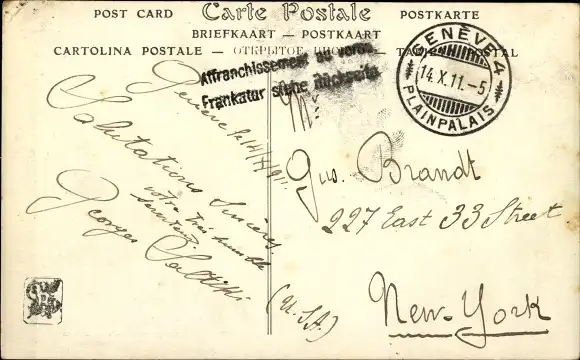 POST CARD Carte Postale POSTKARTE
BRIEFKAART — POSTKAART
CARTOLINA POSTALE — ОТКРЫТОЕ
Affranchissement au verso.
Frankatur siehe Rückseite
GENÈVE 4
14.X.11.-5
PLAINPALAIS
Genève le 14/X/911.
Salutations Sincères
votre très humble
serviteur
Georges
Mr.
Gus. Brandt
227 East 33 Street
New-York
(U.S.A)